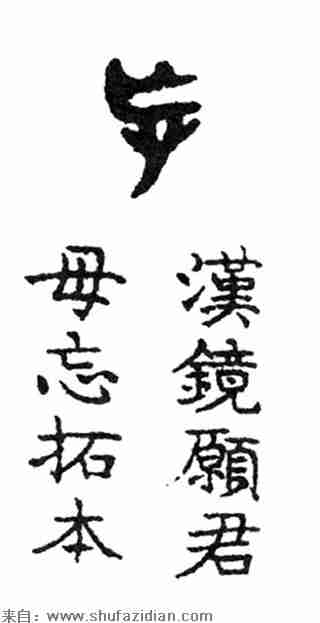 漢鏡願君
毋忘拓本
来自：www.shufazidian.com